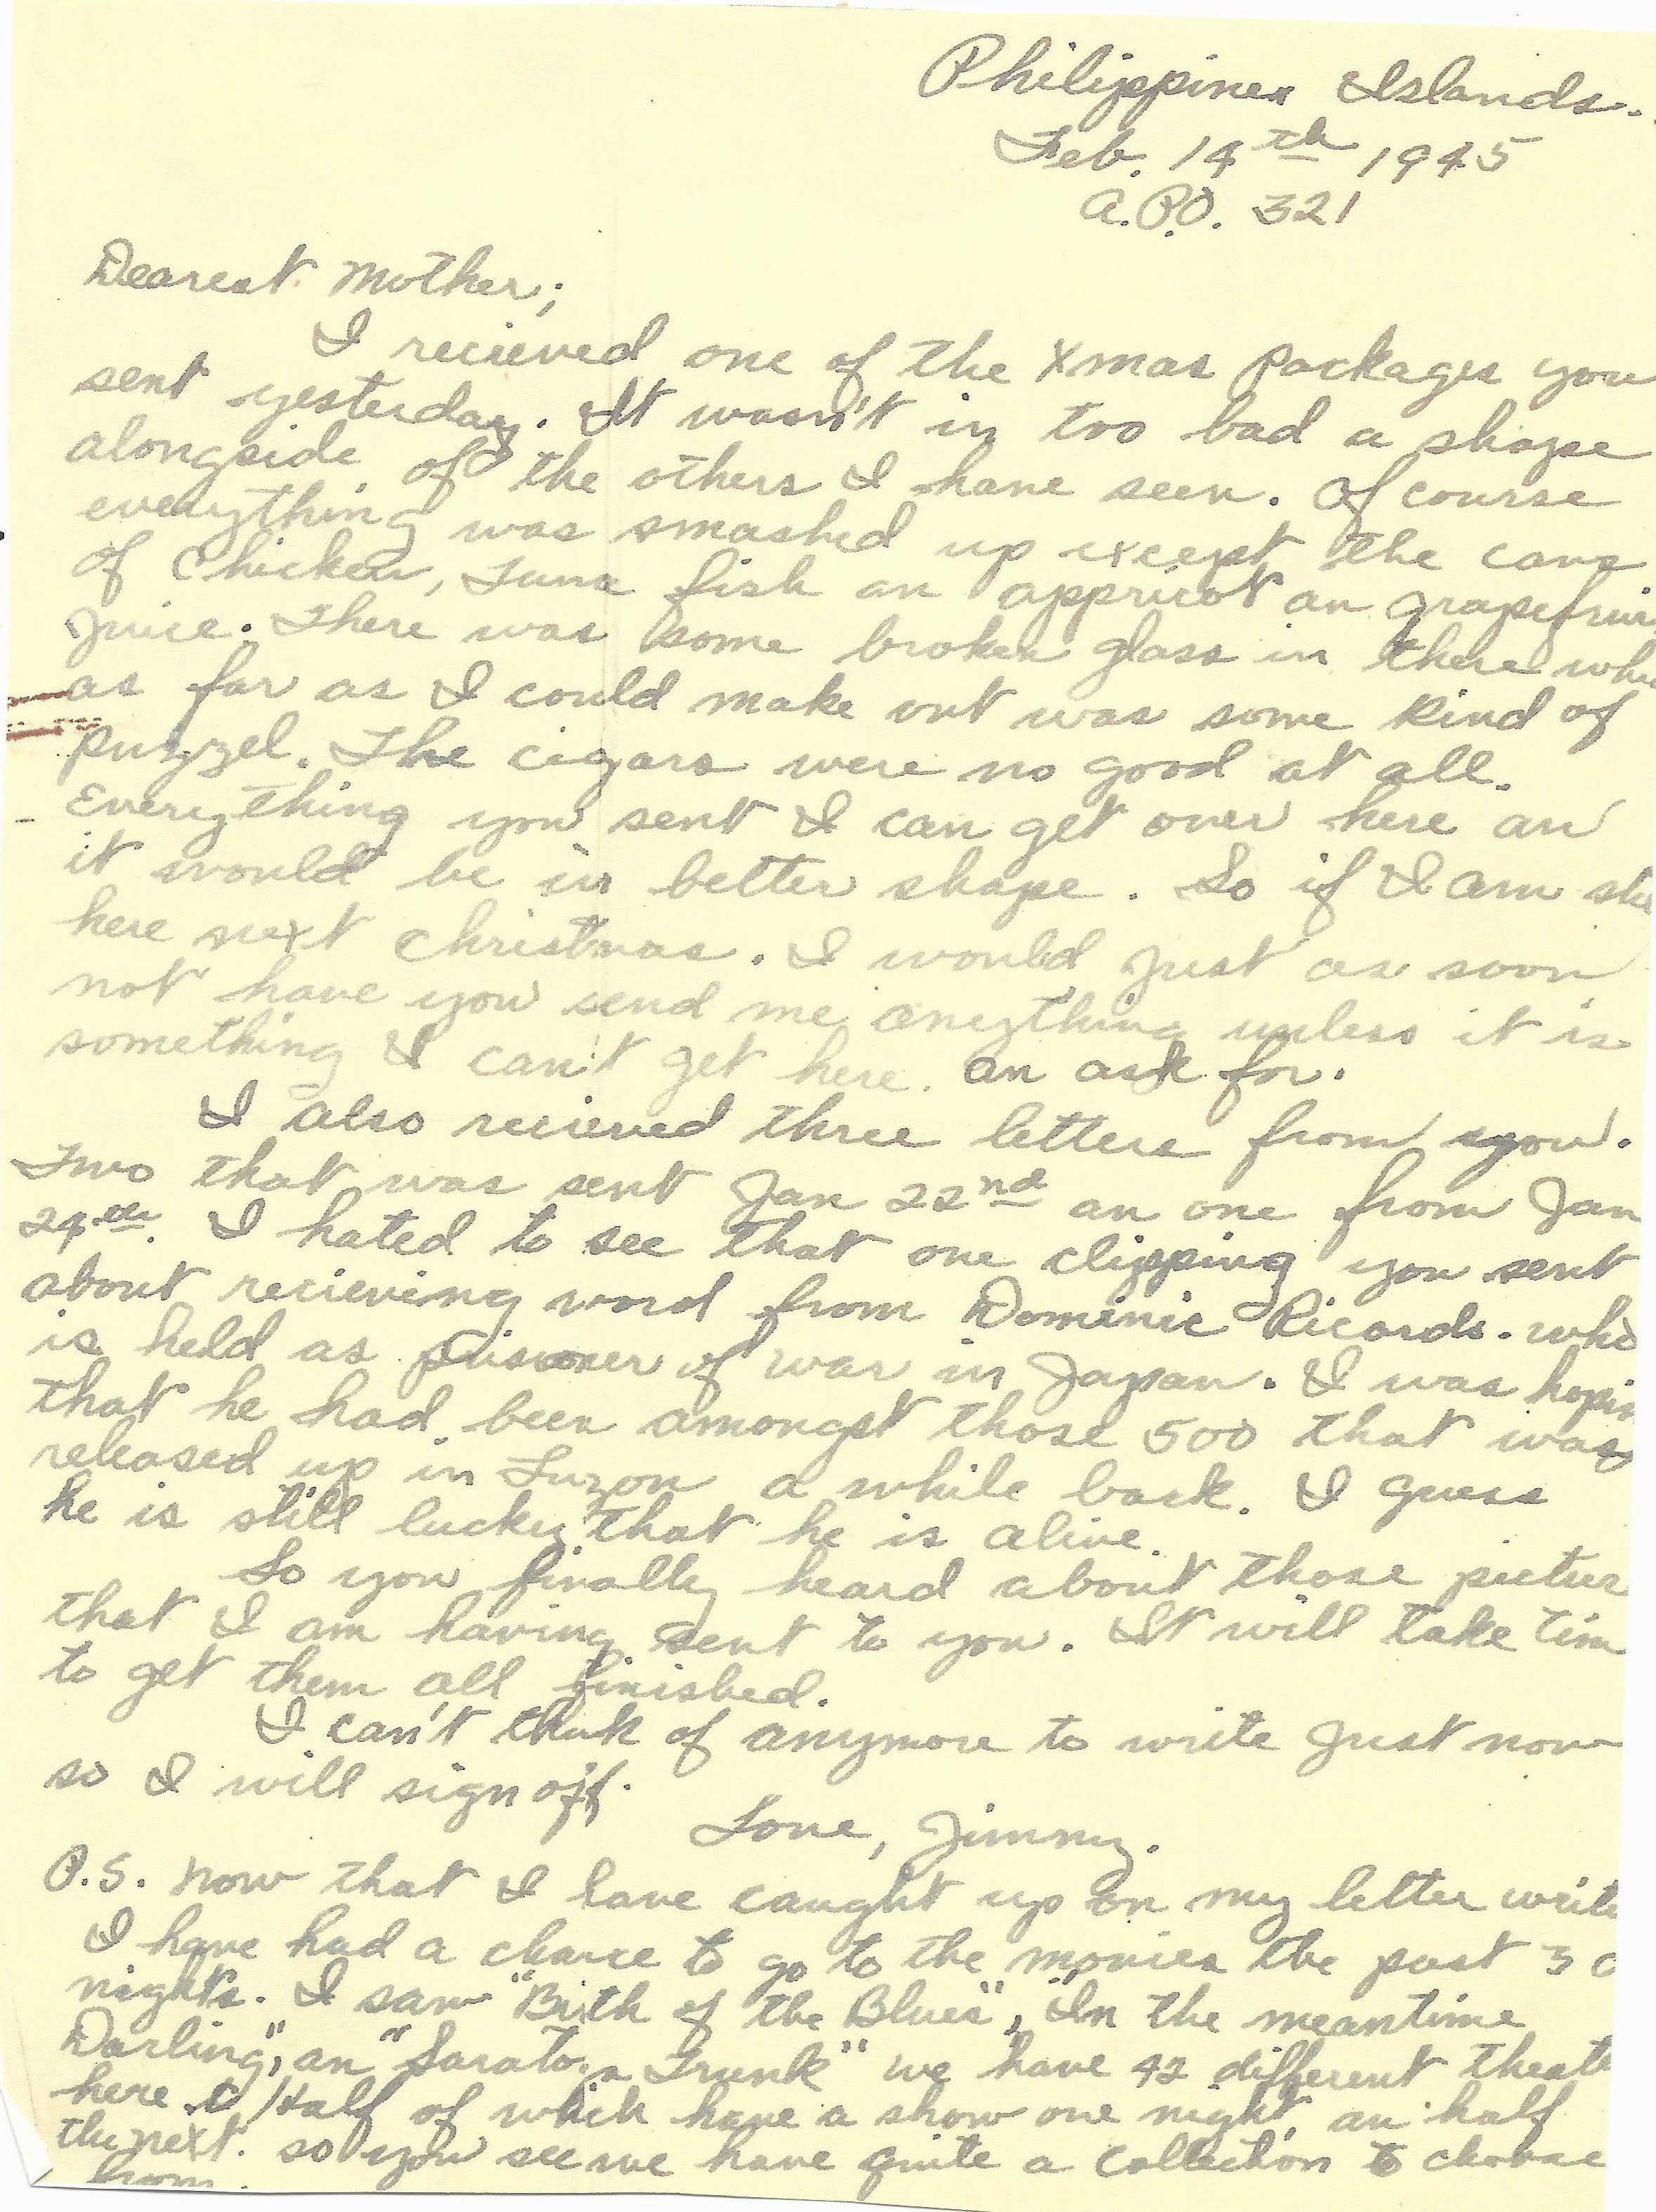 Philippines Islands.
Feb. 14th 1945
A.P.O. 321
Dearest Mother;
I recieved one of the Xmas packages you
sent yesterday. It wasn't in too bad a shape
alongside of the others I have seen. Of course
everything was smashed up except the cans
of Chicken, Tuna fish an appricot an grapefrui
Juice. There was some broken glass in there whi
as far as I could make out was some kind of
puzzel. The cigars were no good at all.
Everything you sent I can get over here an
it would be in better shape. So if I am sti
here next Christmas. I would just as soon
not have you send me anything unless it is
something I can't get here. an ask for.
I also recieved three letters from you.
Two that was sent Jan 22nd an one from Jan
24th. I hated to see that one clipping you sent
about recieving word from Dominic Ricards. who
is held as prisoner of war in Japan. I was hopin
that he had been amongst those 500 that was
released up in Luzon a while back. I guess
he is still lucky that he is alive.
So you finally heard about those pictur
that I am having sent to you. It will take tim
to get them all finished.
I can't think of anymore to write just now
so I will sign off.
Love, Jimmy.
P.S. Now that I have caught up on my letter write
I have had a chance to go to the movies the past 3
nights. I saw "Birth of the Blues", "In the meantime
Darling", an "Saratoga Trunk" we have 42 different theate
here. Half of which have a show one night, an half
the next. so you see we have quite a collection to choose
from.